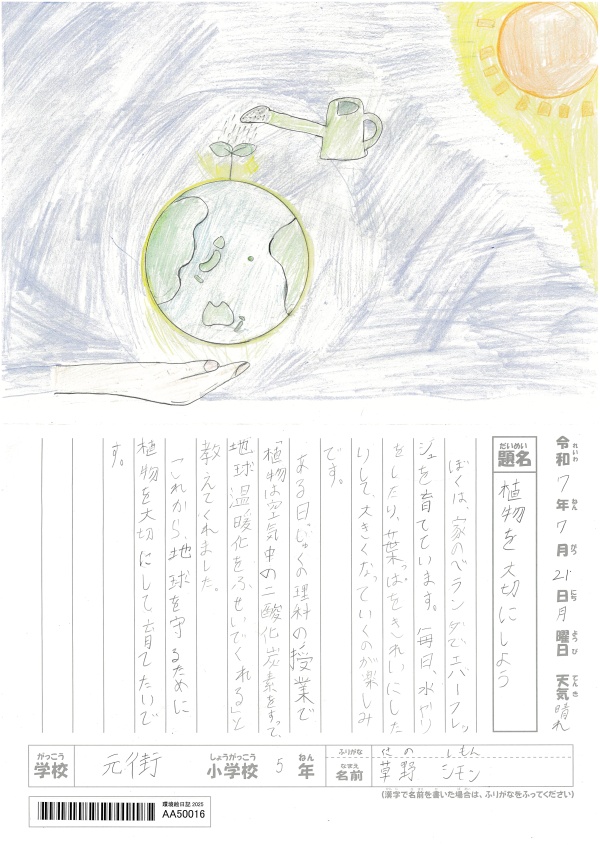 令和7年7月21日月曜日 天気 晴れ
れいわ ねん がつ にち ようび てんき
だいめい
題名 植物を大切にしよう
ぼくは、家のベランダでエバーフレッ
シュを育てています。毎日、水やり
をしたり、葉っぱをきれいにした
りして、大きくなっていくのが楽しみ
です。
ある日じゅくの理科の授業で
「植物は空気中の二酸化炭素をすって、
地球温暖化をふせいでくれる」と
教えてくれました。
これから、地球を守るために
植物を大切にして育てたいで
す。
がっこう しょうがっこう ねん
学校 元街 小学校 5年
ふりがな せの しもん
なまえ
名前 草野 シモン
(漢字で名前を書いた場合は、ふりがなをふってください)
環境絵日記2025
AA50016